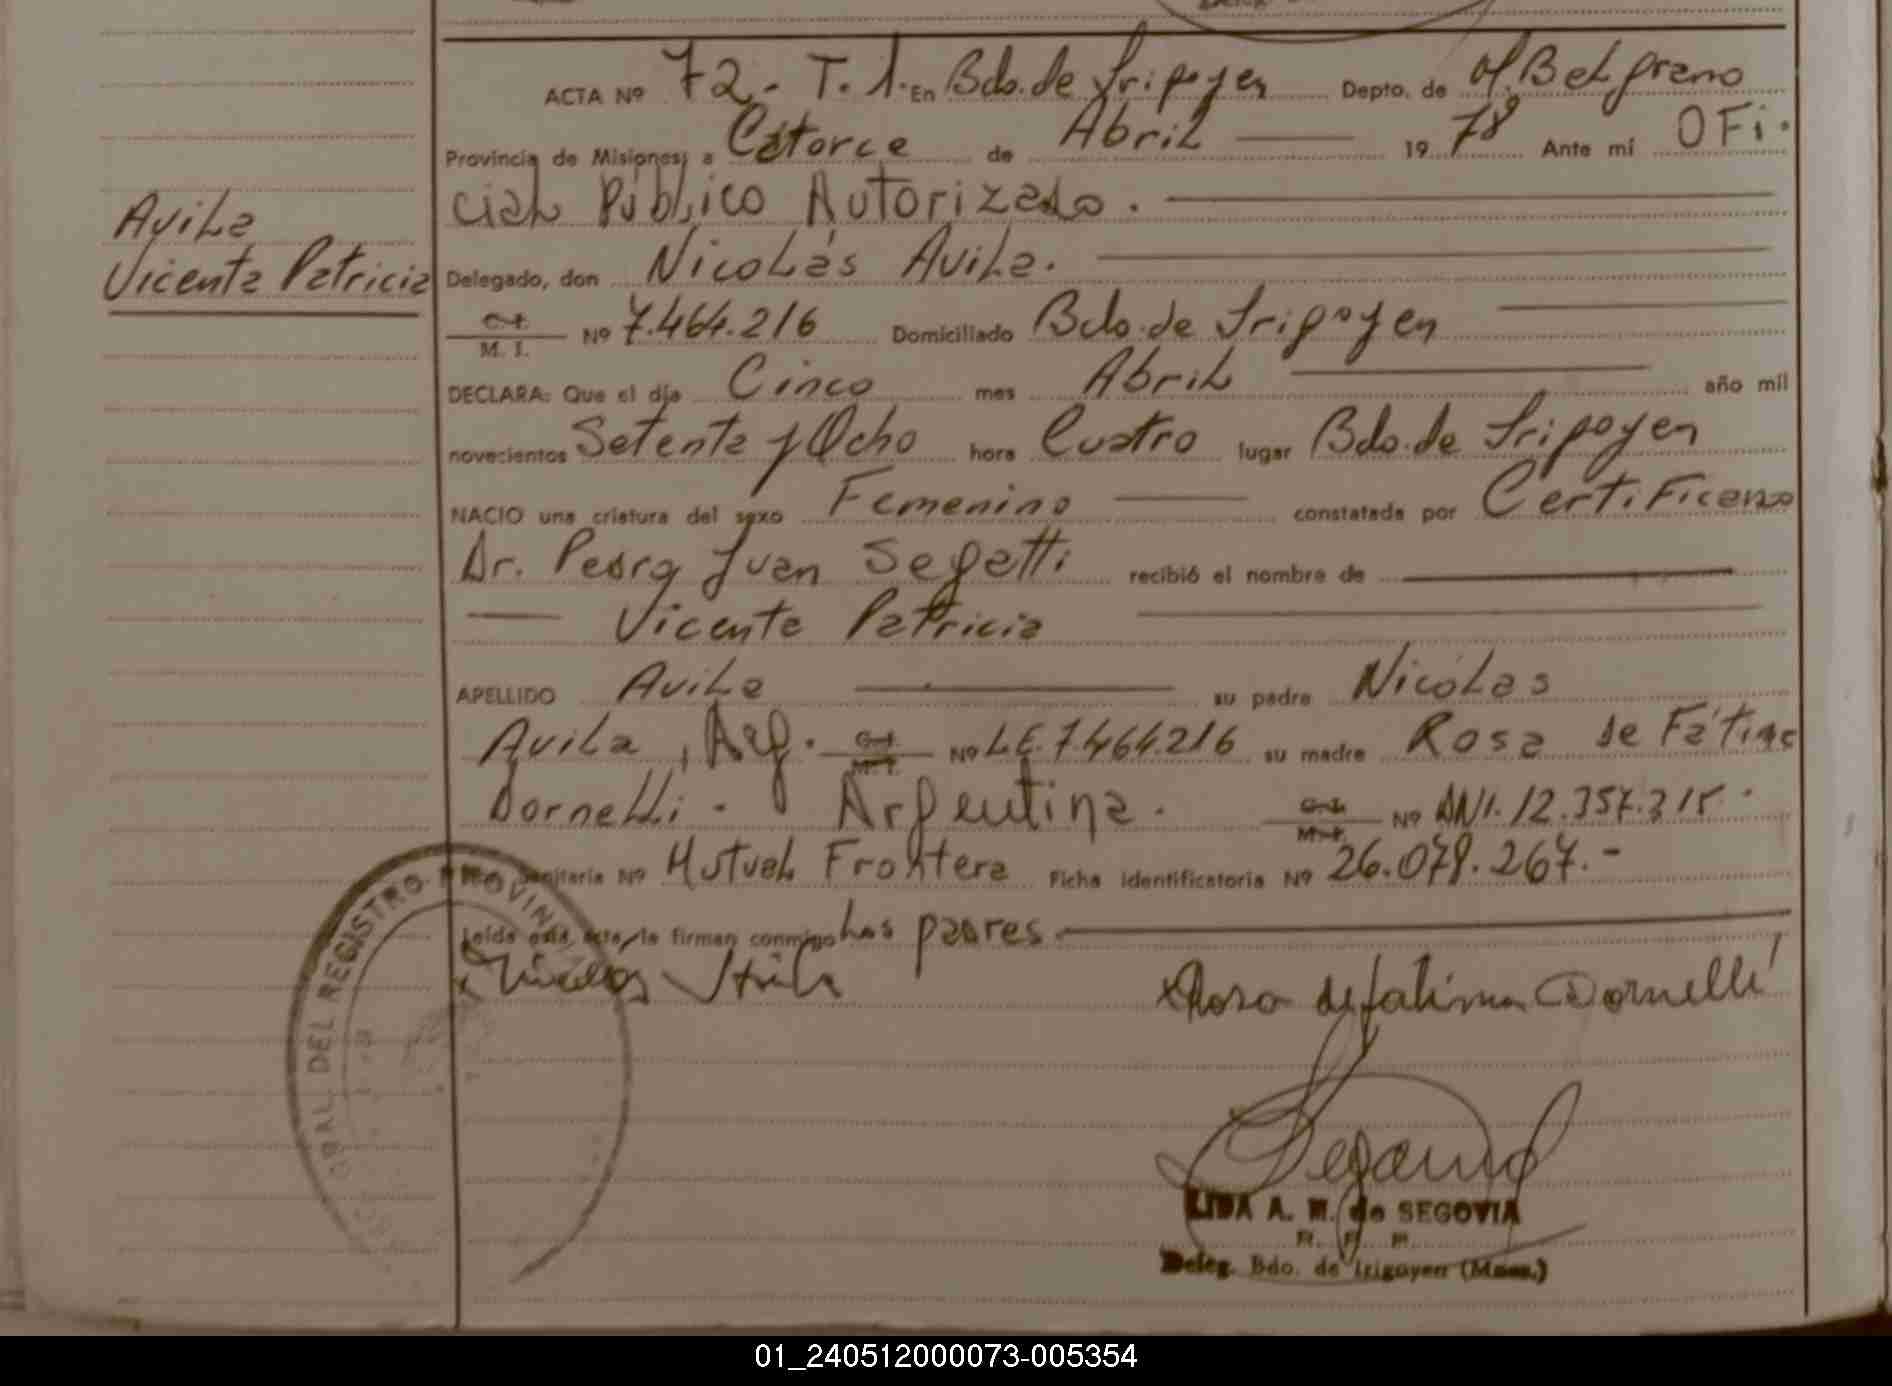 ACTA Nº 72 - T. 1. En Bdo. de Irigoyen Depto. de M. Belgrano
Provincia de Misiones, a Catorce de Abril 1978 Ante mí OFi.
cial Público Autorizado.
Avila
Vicenta Patricia
Delegado, don Nicolás Avila.
C.I. M. I. Nº 7.464.216 Domiciliado Bdo. de Irigoyen
DECLARA: Que el día Cinco mes Abril año mil
novecientos Setenta y Ocho hora Cuatro lugar Bdo. de Irigoyen
NACIO una criatura del sexo Femenino constatada por Certificado
Dr. Pedro Juan Segatti recibió el nombre de
Vicenta Patricia
APELLIDO Avila su padre Nicolas
Avila, Arg. C.I. M.I. Nº L.E. 7.464.216 su madre Rosa de Fátima
Dornelli. Argentina. C.I. M.I. Nº DNI. 12.357.315.
Sanitaria Nº Mutual Frontera Ficha identificatoria Nº 26.079.267.-
Leída esta acta, la firman conmigo los padres
Nicolás Avila
x Rosa de fatima Dornelli
LIDA A. M. de SEGOVIA
Deleg. Bdo. de Irigoyen (Mnes.)
DEL REGISTRO PROVINCI
01_240512000073-005354